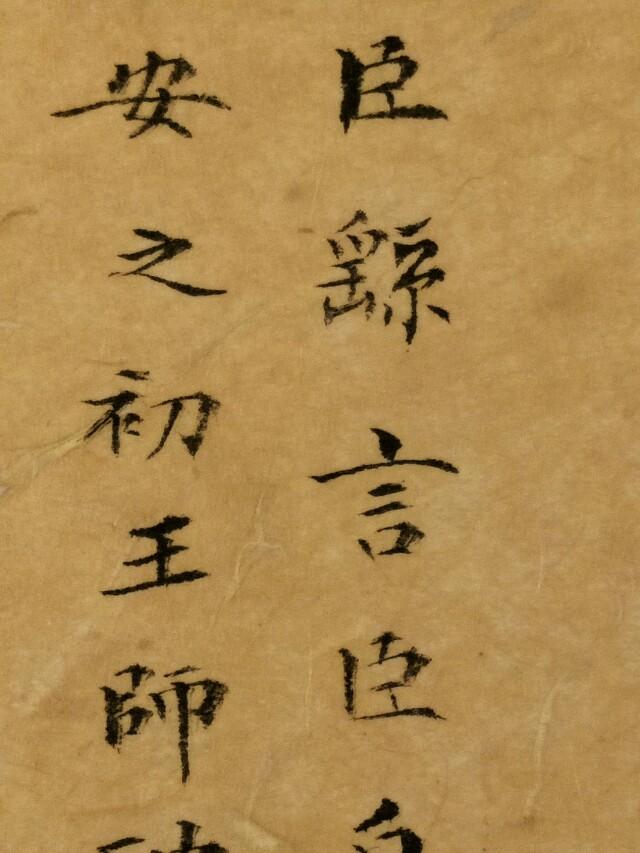 臣繇言臣自
安之初王師